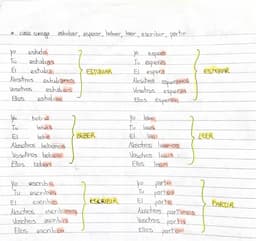 estudiar, esperar, beber, leer, escribir, partir
yo
Tu
El
Nosotros estudiamos
Vosotros
Ellos
ESTUDIAR
yo espero
Tu esperas
El espera
Nosotros esperamos
Vosotros
Ellos esperan
ESPERAR
yo bebo
Tu bebes
El bebe
Nosotros bebemos
Vosotros
Ellos beben
BEBER
yo leo
Tu lees
El lee
Nosotros leemos
Vosotros
Ellos leen
LEER
yo escribo
Tu escribes
El escribe
Nosotros escribimos
Vosotros
Ellos escriben
ESCRIBIR
yo parto
Tu partes
El parte
Nosotros partimos
Vosotros
Ellos parten
PARTIR